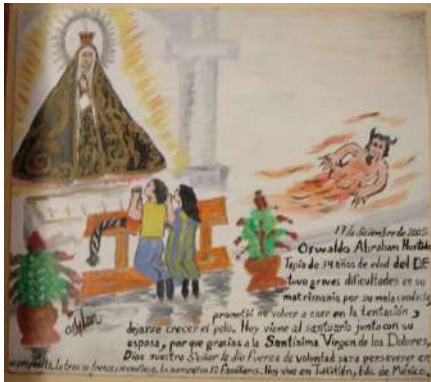 17 de diciembre de 2005
Oswaldo Abraham Hurtado
Tapia de 34 años de edad del DF
tuvo graves dificultades en su
matrimonio por su mala conducta,
prometió no volver a caer en la tentación y
dejarse crecer el pelo. Hoy viene al santuario junto con su
esposa, por que gracias a la Santísima Virgen de los Dolores,
Dios nuestro Señor le dio Fuerza de voluntad para perseverar en
su propósito, la trae su trenza la 52 Familiares. Hoy vive en Tultitlán, Edo. de México.